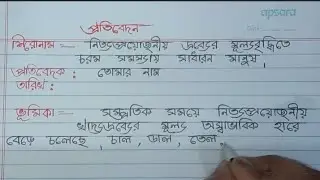 apsara
প্রতিবেদন
শিরোনাম :- নিত্যপ্রয়োজনীয় দ্রব্যের মূল্যবৃদ্ধিতে
চরম সমস্যায় সাধারন মানুষ,
প্রতিবেদক : তোমার নাম
তারিখ :
ভূমিকা :- সম্প্রতিক সময়ে নিত্যপ্রয়োজনীয়
খাদ্যদ্রব্যের মূল্য অস্বাভাবিক হারে
বেড়ে চলেছে, চাল, ডাল, তেল,